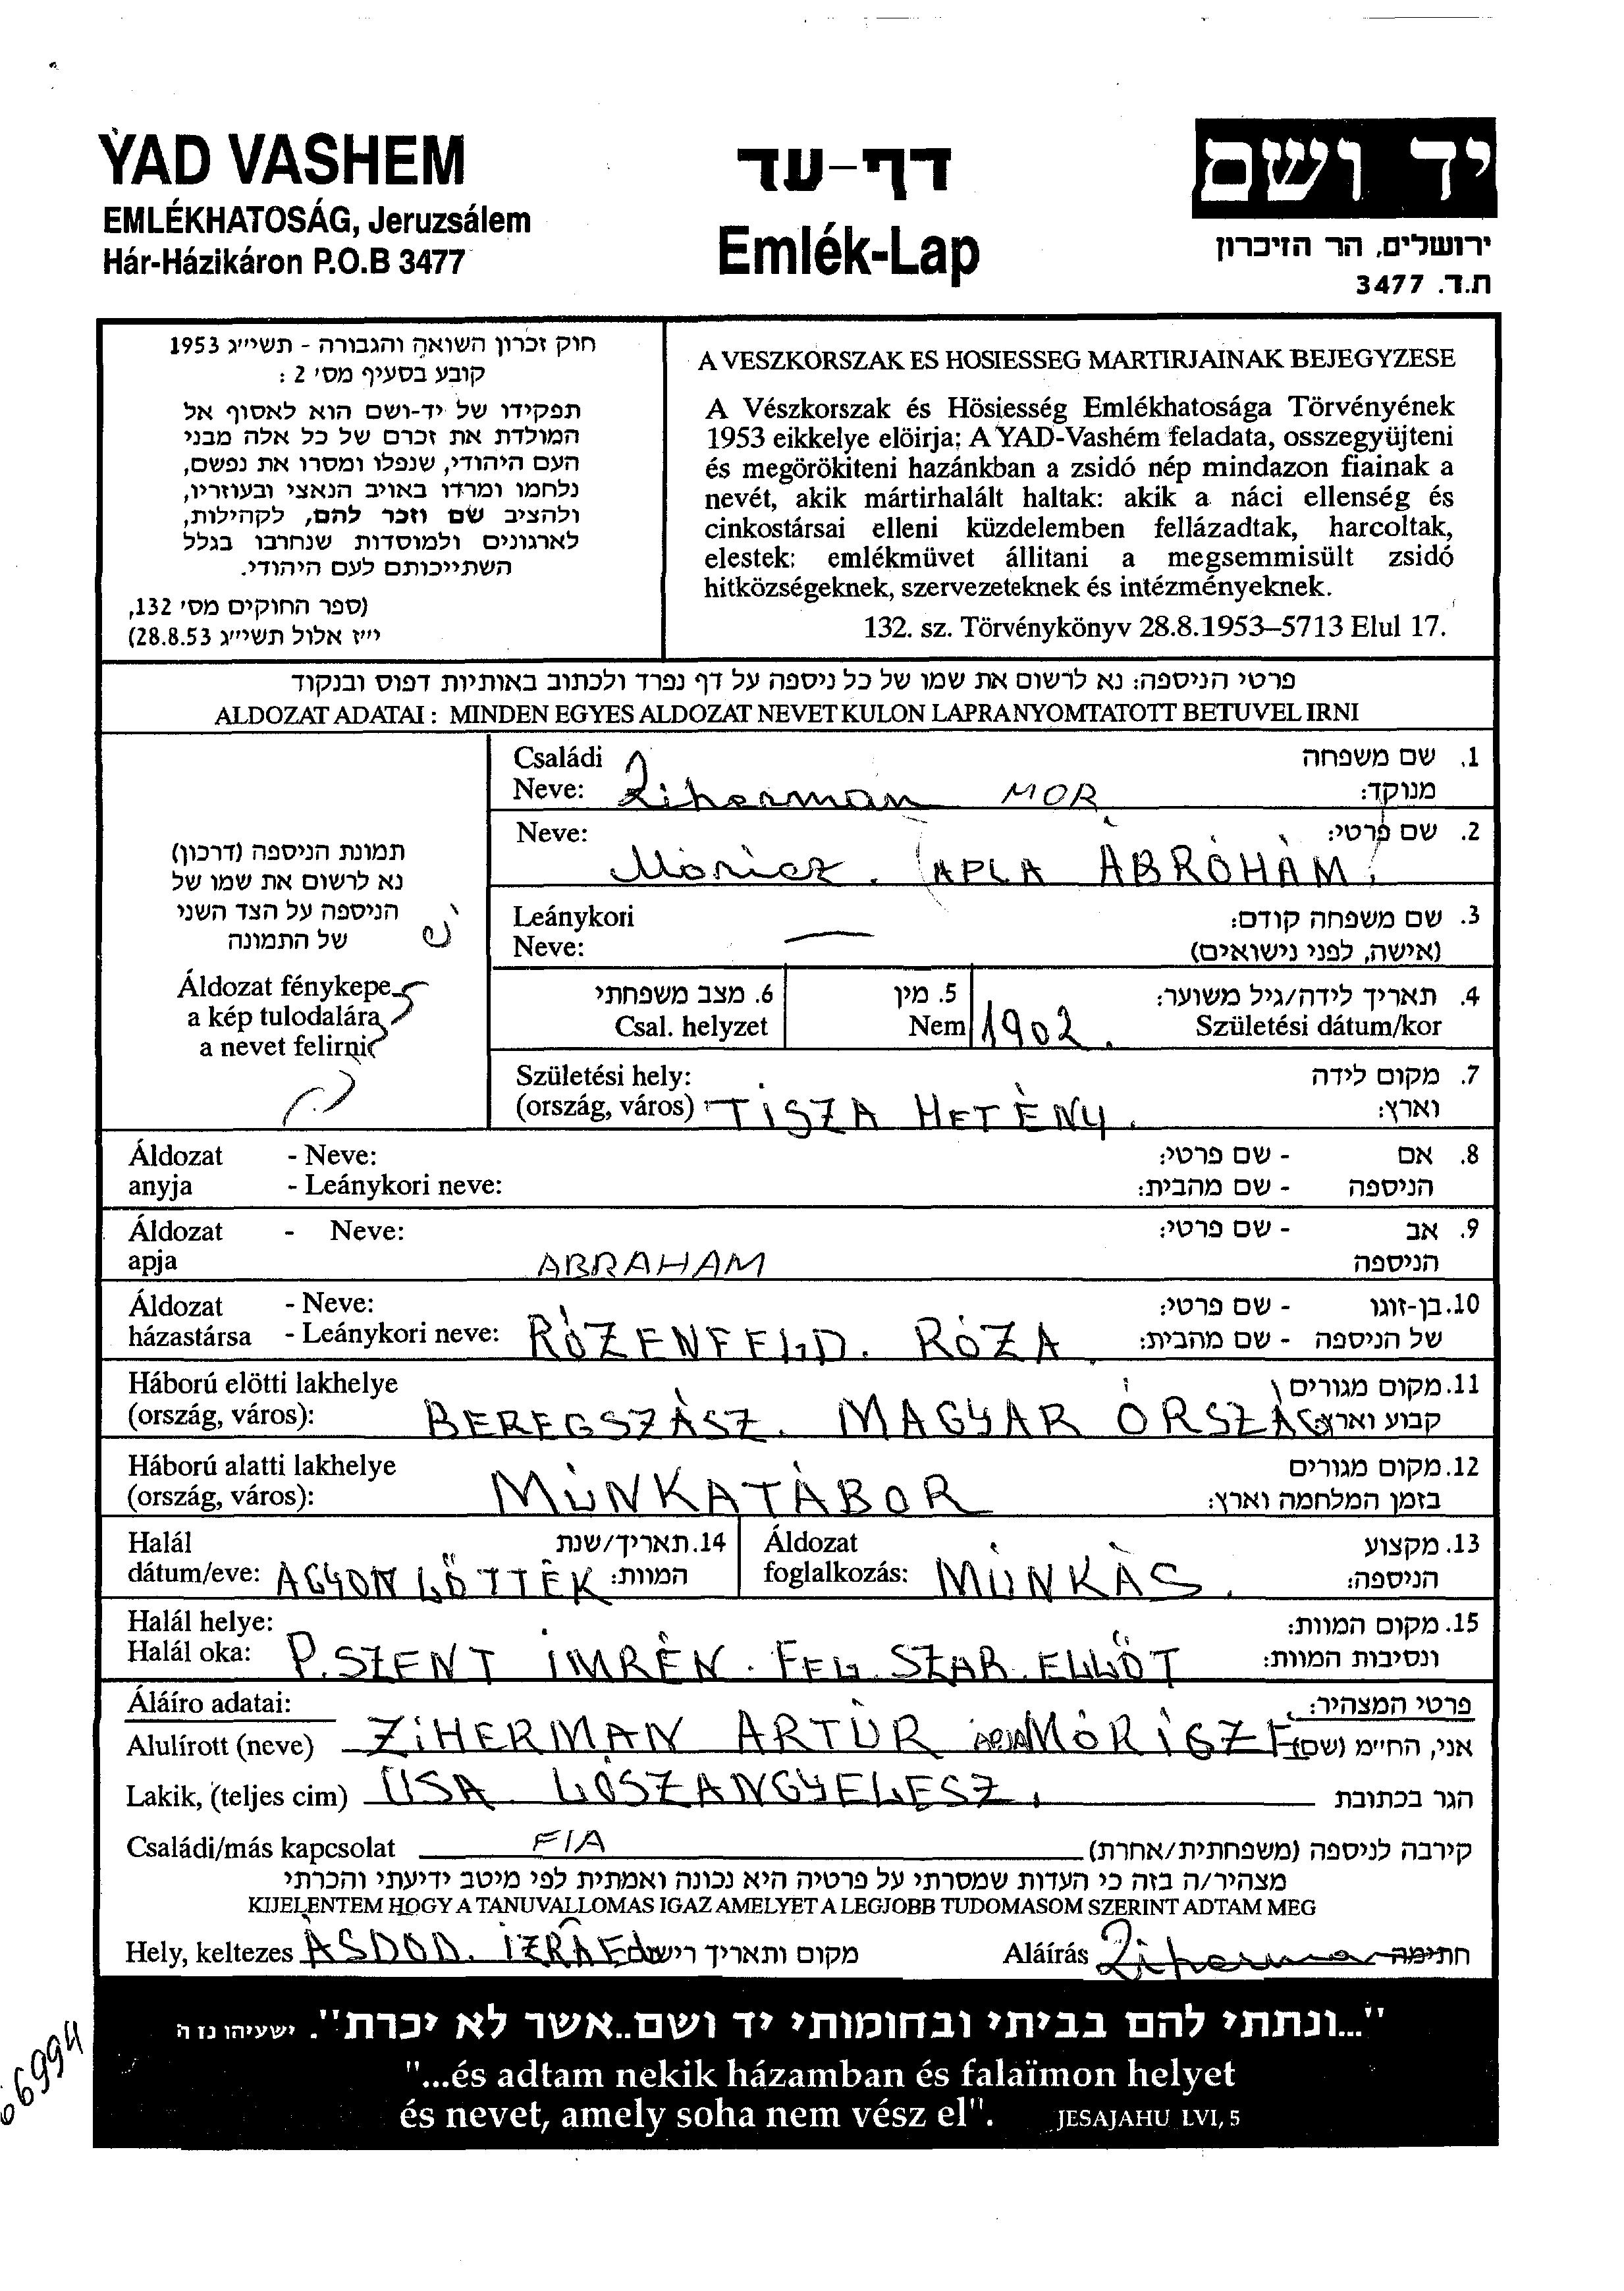 YAD VASHEM
EMLÉKHATOSÁG, Jeruzsálem
Hár-Házikáron P.O.B 3477
דף-עד
Emlék-Lap
יד ושם
ירושלים, הר הזיכרון
ת.ד. 3477
חוק זכרון השואה והגבורה - תשי״ג 1953
קובע בסעיף מס׳ 2 :
תפקידו של יד-ושם הוא לאסוף אל
המולדת את זכרם של כל אלה מבני
העם היהודי, שנפלו ומסרו את נפשם,
נלחמו ומרדו באויב הנאצי ובעוזריו,
ולהציב שם וזכר להם, לקהילות,
לארגונים ולמוסדות שנחרבו בגלל
השתייכותם לעם היהודי.
(ספר החוקים מס׳ 132,
י״ז אלול תשי״ג 28.8.53)
A VESZKORSZAK ES HOSIESSEG MARTIRJAINAK BEJEGYZESE
A Vészkorszak és Hösiesség Emlékhatosága Törvényének
1953 eikkelye elöirja; A YAD-Vashém feladata, osszegyüjteni
és megörökiteni hazánkban a zsidó nép mindazon fiainak a
nevét, akik mártirhalált haltak: akik a náci ellenség és
cinkostársai elleni küzdelemben fellázadtak, harcoltak,
elestek: emlékmüvet állitani a megsemmisült zsidó
hitközségeknek, szervezeteknek és intézményeknek.
132. sz. Törvénykönyv 28.8.1953–5713 Elul 17.
פרטי הניספה: נא לרשום את שמו של כל ניספה על דף נפרד ולכתוב באותיות דפוס ובנקוד
ALDOZAT ADATAI : MINDEN EGYES ALDOZAT NEVET KULON LAPRA NYOMTATOTT BETUVEL IRNI
תמונת הניספה (דרכון)
נא לרשום את שמו של
הניספה על הצד השני
של התמונה
Áldozat fénykepe
a kép tulodalára
a nevet felirni
Családi
Neve: Ziherman MOR
1. שם משפחה
מנוקד:
Neve: Móricz. (APLA ÁBRÓHÁM)
2. שם פרטי:
Leánykori
Neve: —
3. שם משפחה קודם:
(אישה, לפני נישואים)
6. מצב משפחתי
Csal. helyzet
5. מין
Nem
1902.
4. תאריך לידה/גיל משוער:
Születési dátum/kor
Születési hely:
(ország, város) TISZA HETÉNY.
7. מקום לידה
וארץ:
Áldozat - Neve:
anyja - Leánykori neve:
8. אם - שם פרטי:
הניספה - שם מהבית:
Áldozat - Neve:
apja ABRAHAM
9. אב - שם פרטי:
הניספה
Áldozat - Neve:
házastársa - Leánykori neve: RÓZENFELD. RÓZA.
10. בן-זוגו - שם פרטי:
של הניספה - שם מהבית:
Háború elötti lakhelye
(ország, város): BEREGSZÁSZ. MAGYAR ORSZÁG
11. מקום מגורים
קבוע וארץ:
Háború alatti lakhelye
(ország, város): MUNKATÁBOR
12. מקום מגורים
בזמן המלחמה וארץ:
Halál
dátum/eve: AGYON LŐTTÉK
14. תאריך/שנת
המוות:
Áldozat
foglalkozás: MUNKÁS.
13. מקצוע
הניספה:
Halál helye:
Halál oka: P. SZENT IMRÉN. FEL. SZAR. ELLŐT
15. מקום המוות:
ונסיבות המוות:
Aláíro adatai:
פרטי המצהיר:
Alulírott (neve) ZIHERMAN ARTUR APJA MÓRIGZE אני, החי״מ (שם)
Lakik, (teljes cim) USA LÓSZANGYELESZ. הגר בכתובת
Családi/más kapcsolat FIA קירבה לניספה (משפחתית/אחרת)
מצהיר/ה בזה כי העדות שמסרתי על פרטיה היא נכונה ואמתית לפי מיטב ידיעתי והכרתי
KIJELENTEM HOGY A TANUVALLOMAS IGAZ AMELYET A LEGJOBB TUDOMASOM SZERINT ADTAM MEG
Hely, keltezes ASDOD. IZRAEL מקום ותאריך רישום Aláírás Ziherman חתימה
"...ונתתי להם בביתי ובחומותי יד ושם..אשר לא יכרת". ישעיהו נז ה׳
"...és adtam nekik házamban és falaïmon helyet
és nevet, amely soha nem vész el". JESAJAHU LVI, 5